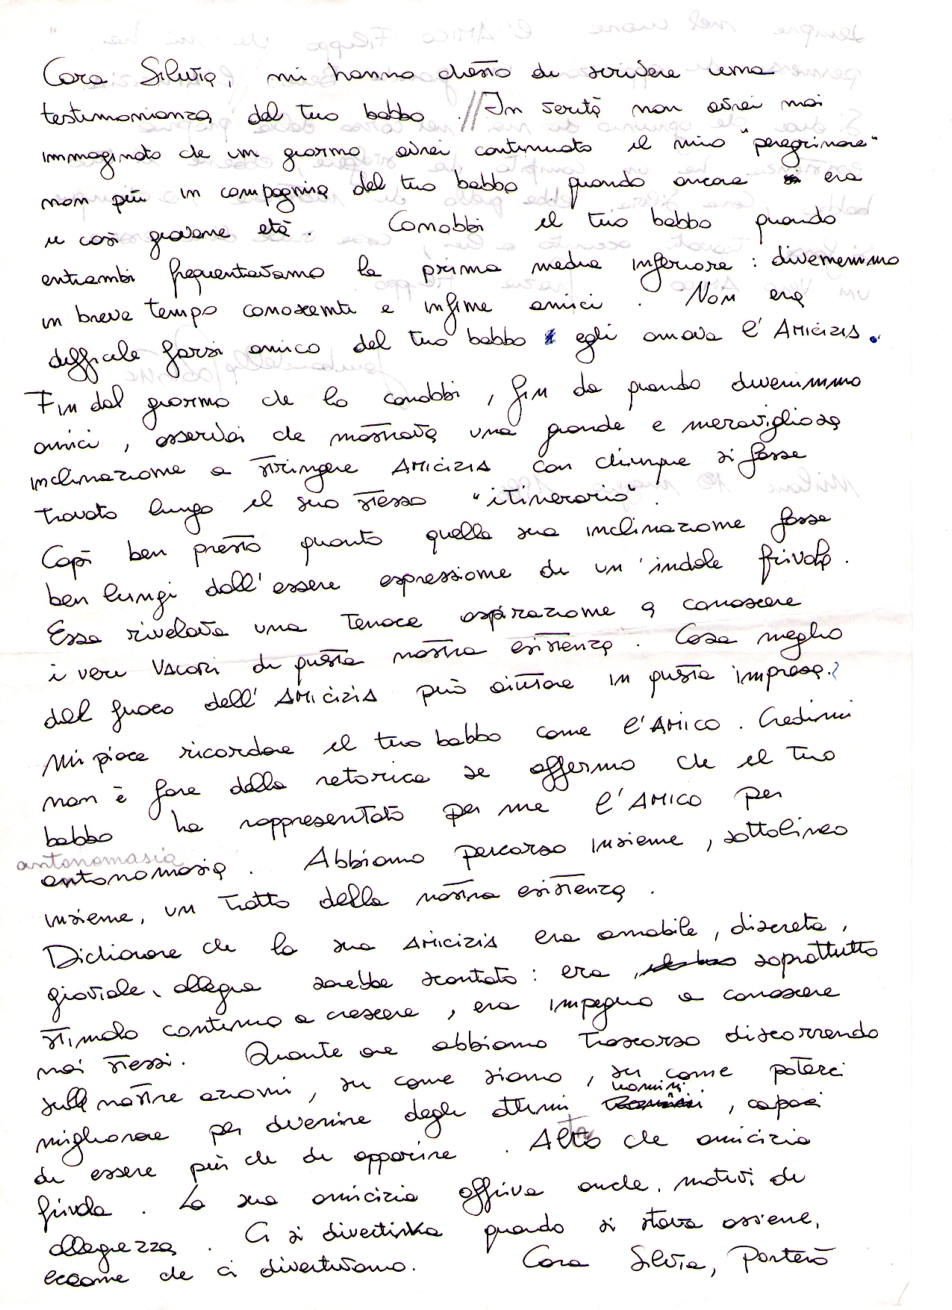 Cara Silvia, mi hanno chiesto di scrivere una
testimonianza del tuo babbo. // In verità non avrei mai
immaginato che un giorno avrei continuato il mio "peregrinare"
non più in compagnia del tuo babbo quando ancora era
in così giovane età. Conobbi il tuo babbo quando
entrambi frequentavamo la prima media inferiore: divenimmo
in breve tempo conoscenti e infine amici. Non era
difficile farsi amico del tuo babbo egli amava l'AMICIZIA.
Fin dal giorno che lo conobbi, fin da quando divenimmo
amici, osservai che mostrava una grande e meravigliosa
inclinazione a stringere AMICIZIA con chiunque si fosse
trovato lungo il suo stesso "itinerario".
Capì ben presto quanto quella sua inclinazione fosse
ben lungi dall'essere espressione di un'indole frivola.
Essa rivelava una tenace aspirazione a conoscere
i veri VALORI di questa nostra esistenza. Cosa meglio
del fuoco dell'AMICIZIA può aiutare in questa impresa?
Mi piace ricordare il tuo babbo come l'AMICO. Credimi
non è fare della retorica se affermo che il tuo
babbo ha rappresentato per me l'AMICO per
antonomasia
antonomasia. Abbiamo percorso insieme, sottolineo
insieme, un tratto della nostra esistenza.
Dichiarare che la sua AMICIZIA era amabile, discreta,
gioviale, allegra sarebbe scontato: era, soprattutto
stimolo continuo a crescere, era impegno a conoscere
noi stessi. Quante ore abbiamo trascorso discorrendo
sulle nostre azioni, su come siamo, su come poterci
uomini
migliorare per divenire degli ottimi, capaci
di essere più che di apparire. Altro che amicizia
frivola. La sua amicizia offriva anche motivi di
allegrezza. Ci si divertiva quando si stava assieme,
eccome che ci divertivamo. Cara Silvia, Porterò